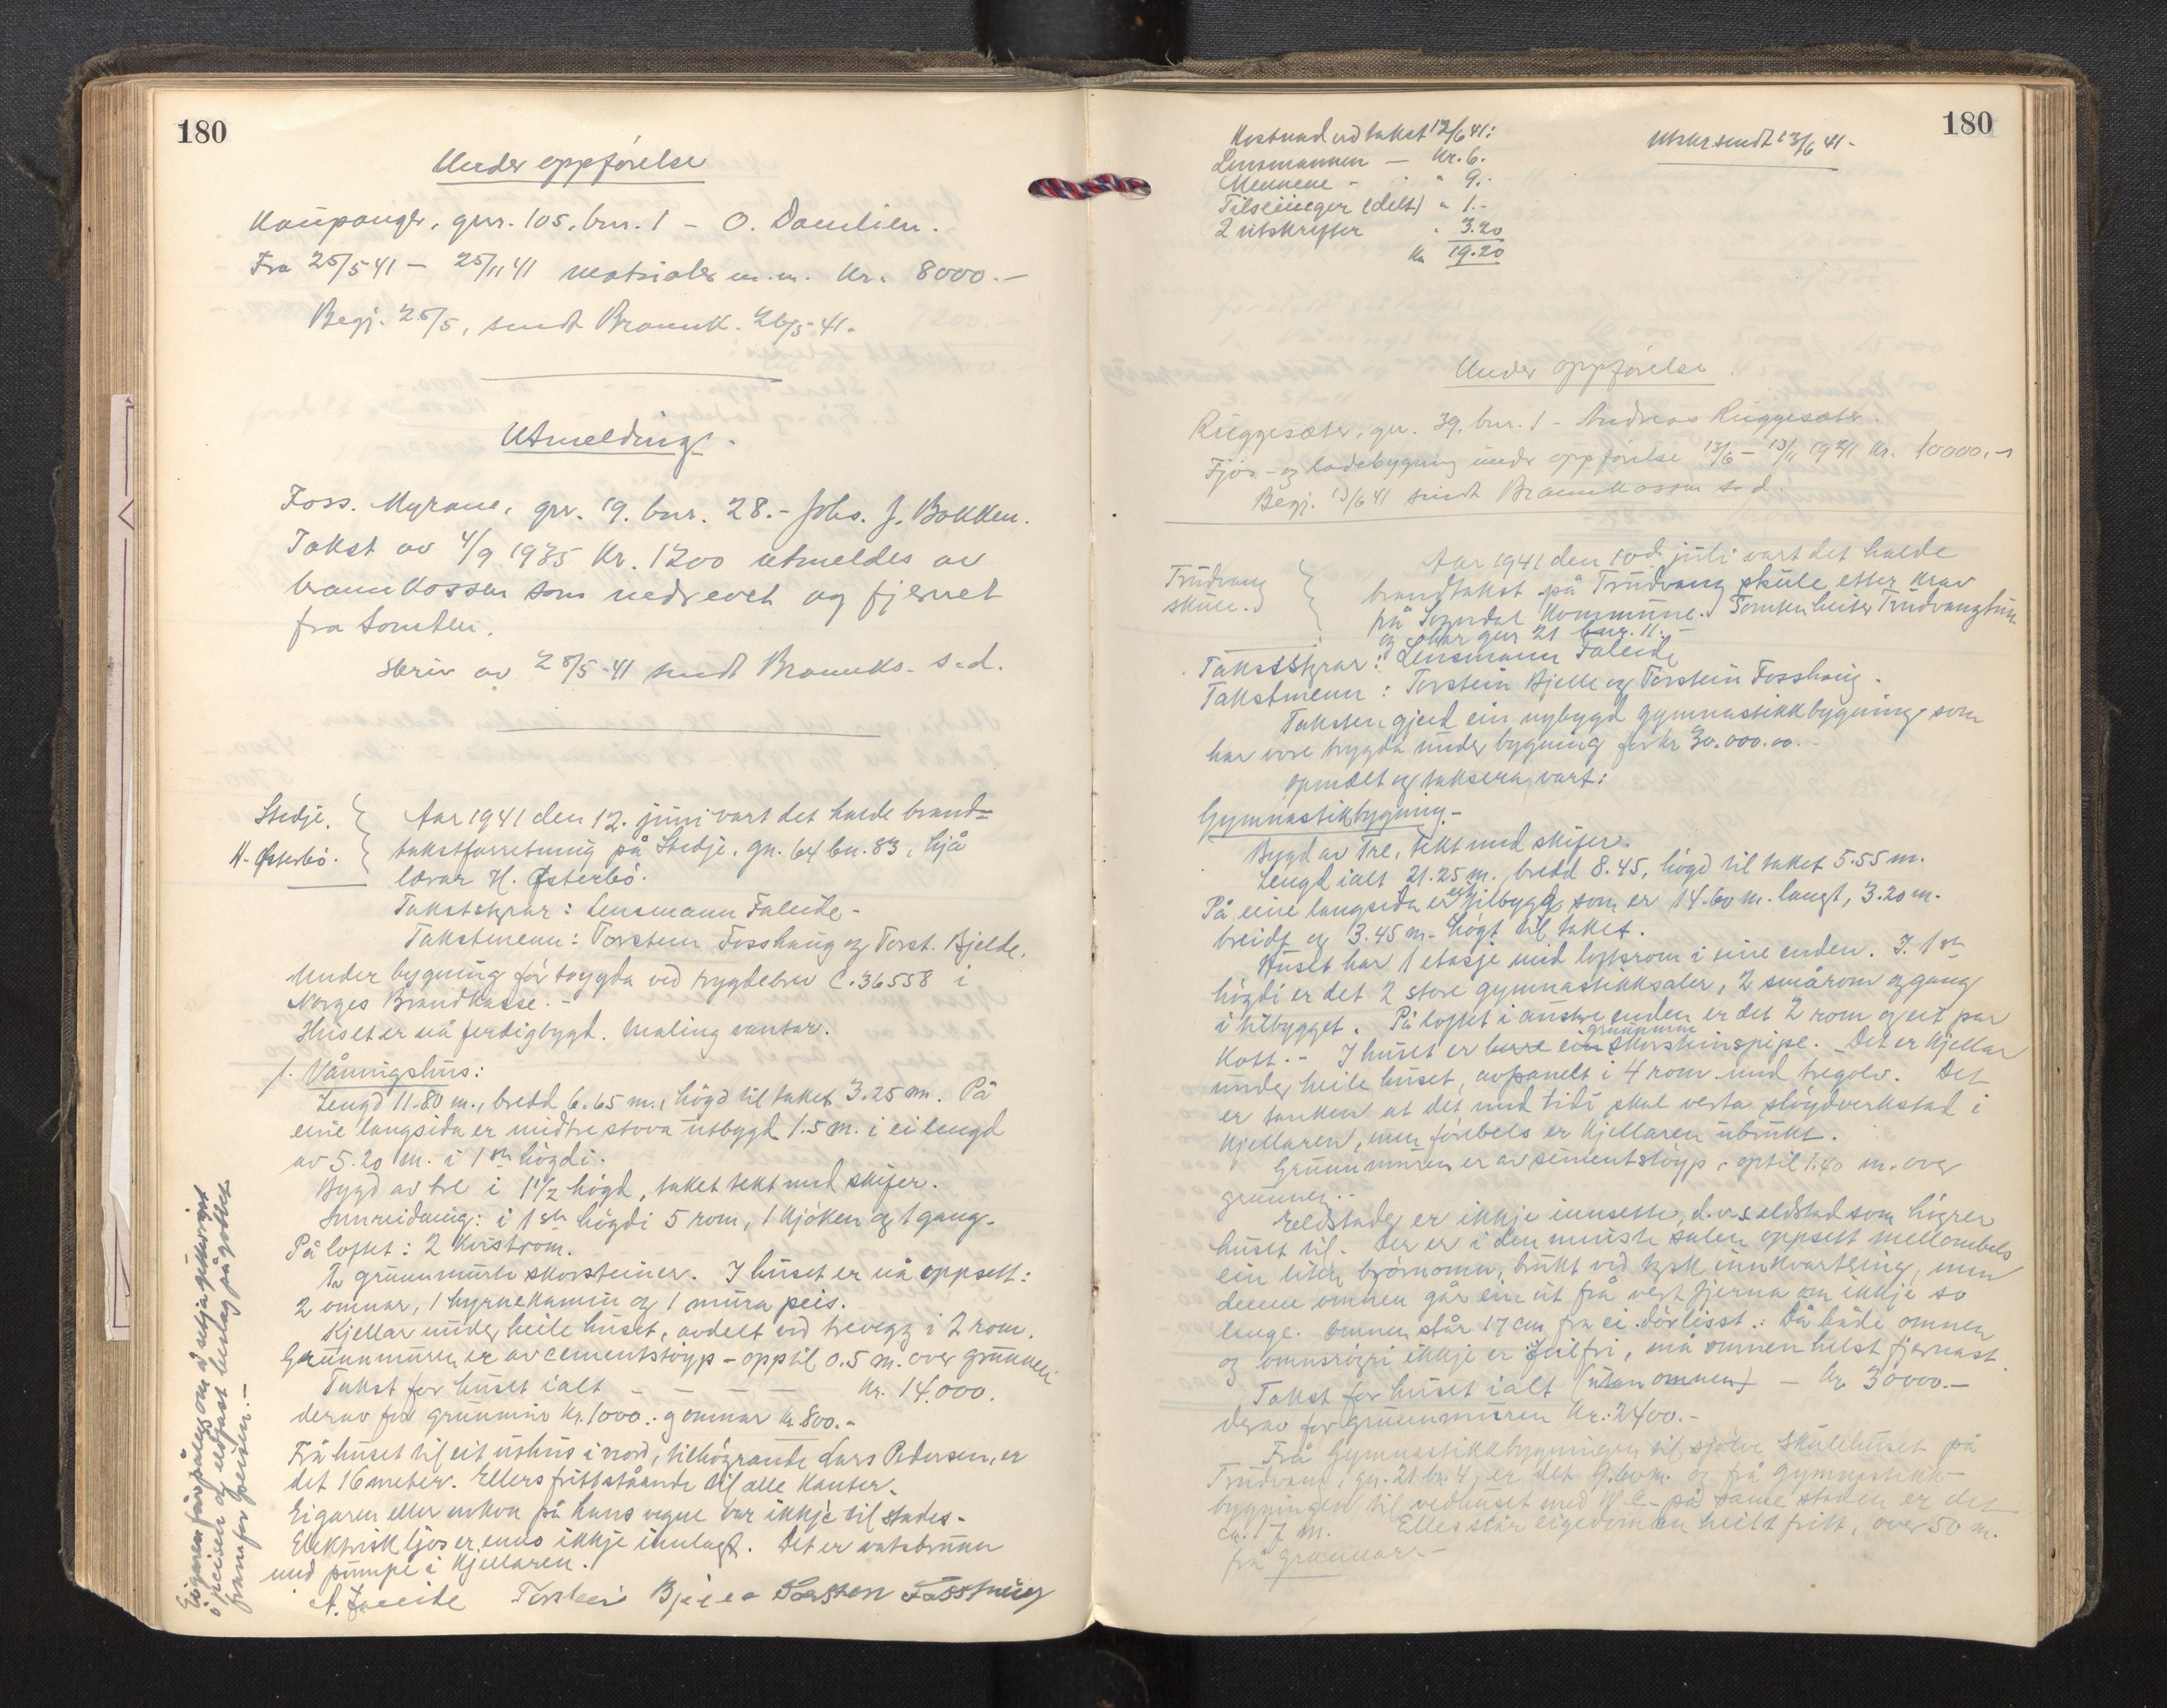 180
Under oppförelse
Kaupanger, gnr. 105, bnr. 1 - O. Domlien.
Fra 25/5 41 - 25/11 41 materialer m.m. Kr. 8000.-
Begj. 25/5, sendt Brannk. 26/5-41.
Utmelding.
Foss. Myrane, gnr. 19. bnr. 28.- Johs. J. Bakken.
Takst av 4/9 1935 Kr. 1200 utmeldes av
brannkassen som nedrevet og fjernet
fra tomten.
Skriv av 28/5-41 sendt Brannks. s.d.
Stedje.
H. Østerbö.
Aar 1941 den 12. juni vart det halde brand-
takstforretning på Stedje, gn. 64 bn. 83, hjå
lærar H. Østerbö.
Takststyrar: Lensmann Faleide-
Takstmenn: Torstein Fosshaug og Torst. Bjelde.
Under bygning før trygda ved trygdebrev C.36558 i
Norges Brandkasse.-
Huset er nå ferdigbygd. Maling vantar.
1. Våningshus:
Lengd 11.80 m., bredd 6.65 m., högd til taket 3.25 m. På
eine langsida er midtre stova utbygd 1.5 m. i ei lengd
av 5.20 m. i 1ste högdi.
Bygd av tre i 1 1/2 högd, taket tekt med skifer.
Innreidning: i 1ste högdi 5 rom, 1 kjöken og 1 gang.
På loftet: 2 kvistrom.
To grunnmurte skorsteiner. I huset er nå oppsett:
2 omnar, 1 hyrnekamin og 1 mura peis.
Kjellar under heile huset, avdelt ved trevegg i 2 rom.
Grunnmuren er av cementstöyp - opptil 0.5 m. over grunnen
Takst for huset ialt - - - - Kr. 14.000.
derav for grunnmur Kr. 1000.- og omnar Kr. 800.-
Frå huset til eit uthus i nord, tilhöyrande Lars Pedersen, er
det 16 meter. Ellers frittståande til alle kantar.
Eigaren eller nokon på hans vegne var ikkje til stades-
Elektrisk ljos er enno ikkje innlagt. Det er vatsbrunn
med pumpe i kjellaren.
A. Faleide Torstein Bjelde Torsten Fosshaug
Eigaren får pålegg om å setja gitter
i peisen og eldfast beslag på golvet
framfor peisen.-
180
Kostnad ved takst 12/6 41:
Lensmannen - Kr. 6.
Mennene - " 9.-
Tilseiinger (delt) " 1.-
2 utskrifter " 3.20
Kr 19.20
Utskr. sendt 13/6 41-
Under oppförelse.
Ruggesæter, gnr. 39, bnr. 1 - Andreas Ruggesæter.
Fjös- og ladebygning under oppförelse 13/6 - 13/11 1941 Kr. 10000.-
Begj. 13/6 41 sendt Brannkassen s.d.
Trudvang
skule.
Aar 1941 den 10d juli vart det halde
brandtakst på Trudvang skule etter krav
frå Sogndal Kommune. Tomten heiter Trudvangtun
og har gnr 21 bnr. 11.-
Takststyrar: Lensmann Faleide
Takstmenn: Torstein Bjelde og Torstein Fosshaug.
Taksten gjeld ein nybygd gymnastikkbygning som
har vore trygda under bygning for kr 30.000.00.-
Opmælt og taksera vart:
Gymnastikbygning.-
Bygd av Tre, tekt med skifer.
Lengd ialt 21.25 m., bredd 8.45, högd til taket 5.55 m.
På eine langsida er eit tilbygg som er 14.60 m. langt, 3.20 m.
breidt og 3.45 m. högt til taket.
Huset har 1 etasje med loftsrom i eine enden. I 1ste
högdi er det 2 store gymnastikksaler, 2 smårom og gang
i tilbygget. På loftet i austre enden er det 2 rom og eit par
kott.- I huset er berre ein grunnmura skorsteinspipe. Det er kjellar
under heile huset, avpanelt i 4 rom med tregolv. Det
er tanken at det med tidi skal verta slöydverkstad i
kjellaren, men förebels er kjellaren ubrukt.
Grunnmuren er av sementstöyp, optil 1.40 m. over
grunnen.-
Eldstader er ikkje innsette, d.v.s eldstad som höyrer
huset til. Der er i den minste salen oppsett mellombels
ein liten björnomn, brukt ved tysk innkvartering, men
denne omnen går ein ut frå vert fjerna om ikkje so
lenge. Omnen står 17 cm fra ei dörlisst. Då både omnen
og omnsröyri ikkje er feilfri, må omnen helst fjernast.
Takst for huset ialt (utan omnen) - Kr 30000.-
derav for grunnmuren Kr. 2400.-
Frå Gymnastikkbygningen til sjölve skulehuset på
Trudvang, gn. 21 bn. 4, er det 9. m. og frå gymnastikk-
bygningen til vedhuset med W.C. på same staden er det
ca. 7 m. Elles står eigedomen heilt fritt, over 50 m.
frå grannar.-